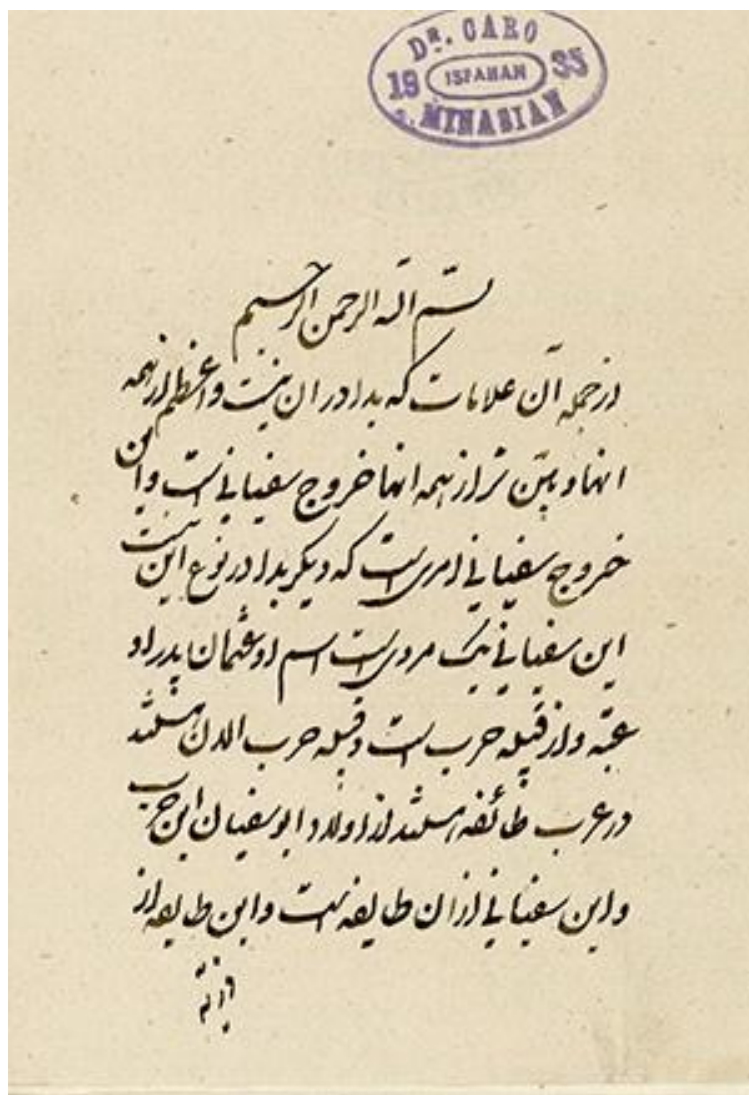 Dr. CARO
19 ISPAHAN 35
MINASIAN
بسم الله الرحمن الرحیم
از جمله آن علامات که بدا در ان نیست و اعظم از همه
انها و بیّن تر از همه انها خروج سفیانی است و این
خروج سفیانی امری است که دیکر بدا در نوع این نیست
این سفیانی یک مردی است اسم او عثمان پدر او
عتبه و از قبیله حرب است و قبیله حرب الان هستند
در عرب طائفه هستند از اولاد ابو سفیان ابن حرب
و این سفیانی از ان طایفه است و این طایفه از